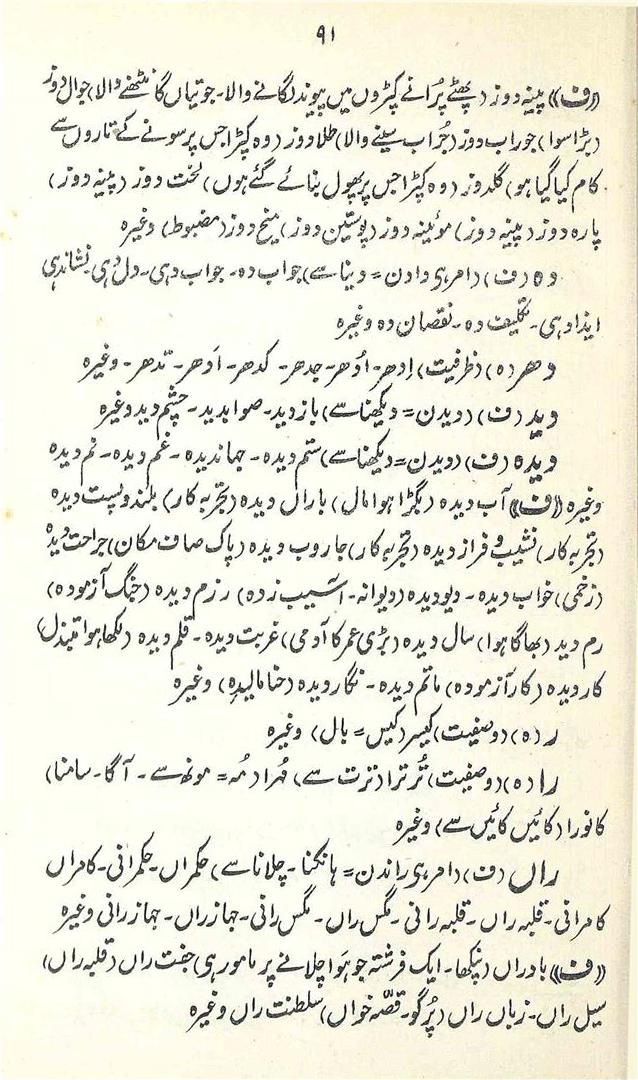 ۹۱
((ف)) پینہ دوز (پھٹے پُرانے کپڑوں میں پیوند لگانے والا۔ جوتیاں گانٹھنے والا) جوال دوز
(بڑا سوا) جوراب دوز (جُراب سینے والا) طلادوز (وہ کپڑا جس پر سونے کے تاروں سے
کام کیا گیا ہو) گلدوز (وہ کپڑا جس پر پھول بنائے گئے ہوں) لخت دوز (پینہ دوز)
پارہ دوز (پینہ دوز) موئینہ دوز (پوستین دوز) میخ دوز (مضبوط) وغیرہ
دہ (ف) (امر ہی دادن = دینا سے) جواب دہ۔ جواب دہی۔ دل دہی۔ نشاندہی
ایذا دہی۔ تکلیف دہ۔ نقصان دہ وغیرہ
دھر (ہ) (ظرفیت) اِدھر۔ اُدھر۔ جدھر۔ کدھر۔ اَدھر۔ تدھر۔ وغیرہ
دید (ف) (دیدن = دیکھنا سے) بازدید۔ صوابدید۔ چشم دید وغیرہ
دیدہ (ف) (دیدن = دیکھنا سے) ستم دیدہ۔ جہاندیدہ۔ غم دیدہ۔ نم دیدہ
وغیرہ ((ف)) آب دیدہ (بگڑا ہوا مال) باراں دیدہ (تجربہ کار) بلند و پست دیدہ
(تجربہ کار) نشیب و فراز دیدہ (تجربہ کار) جاروب دیدہ (پاک صاف مکان) جراحت دیدہ
(زخمی) خواب دیدہ۔ دیو دیدہ (دیوانہ۔ آسیب زدہ) رزم دیدہ (جنگ آزمودہ)
رم دید (بھاگا ہوا) سال دیدہ (بڑی عمر کا آدمی) غربت دیدہ۔ قلم دیدہ (لکھا ہوا مبتذل)
کار دیدہ (کار آزمودہ) ماتم دیدہ۔ نگار دیدہ (حنا مالیدہ) وغیرہ
ر (ہ) (وصفیت) کیسر (کیس = بال) وغیرہ
را (ہ) (وصفیت) تُرترا (ترت سے) مُہرا (مُہ = مونھ سے۔ آگا۔ سامنا)
کانورا (کائیں کائیں سے) وغیرہ
راں (ف) (امر ہی راندن = ہانکنا۔ چلانا سے) حکمراں۔ حکمرانی۔ کامراں
کامرانی۔ قلبہ راں۔ قلبہ رانی۔ مگس راں۔ مگس رانی۔ جہازراں۔ جہازرانی وغیرہ
((ف)) بادراں (پنکھا۔ ایک فرشتہ جو ہَوا چلانے پر مامور ہی) جفت راں (قلبہ راں)
سیل راں۔ زباں راں (پُرگو۔ قصّہ خواں) سلطنت راں وغیرہ